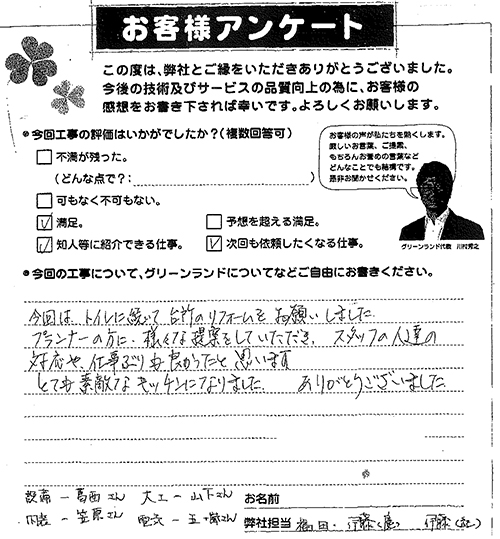 お客様アンケート
この度は、弊社とご縁をいただきありがとうございました。
今後の技術及びサービスの品質向上の為に、お客様の
感想をお書き下されば幸いです。よろしくお願いします。
●今回工事の評価はいかがでしたか？(複数回答可)
□不満が残った。
(どんな点で？:)
□可もなく不可もない。
☑満足。
□予想を超える満足。
☑知人等に紹介できる仕事。
☑次回も依頼したくなる仕事。
お客様の声が私たちを熱くします。
厳しいお言葉、ご提案、
もちろんお誉めの言葉など
どんなことでも結構です。
是非お聞かせください。
グリーンランド代表 川村芳之
●今回の工事について、グリーンランドについてなどご自由にお書きください。
今回は、トイレに続いて台所のリフォームをお願いしました
プランナーの方に、様々な提案をしていただき、スタッフの人達の
対応や、仕事ぶりも良かったと思います
とても素敵なキッチンになりました。 ありがとうございました
設備 ー 葛西さん 大工 ー 山下さん
内装 ー 笠原さん 電気 ー 五十嵐さん
お名前
弊社担当 福田・伊藤(広) 伊藤(紀)